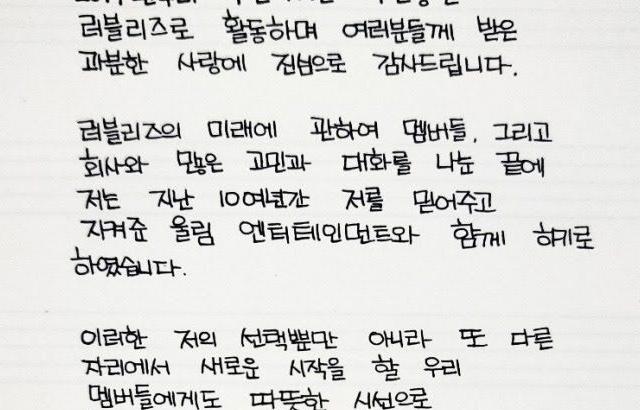 러블리즈로 활동하며 여러분들께 받은
과분한 사랑에 진심으로 감사드립니다.
러블리즈의 미래에 관하여 멤버들, 그리고
회사와 많은 고민과 대화를 나눈 끝에
저는 지난 10여년간 저를 믿어주고
지켜준 울림 엔터테인먼트와 함께 하기로
하였습니다.
이러한 저의 선택뿐만 아니라 또 다른
자리에서 새로운 시작을 할 우리
멤버들에게도 따뜻한 시선으로